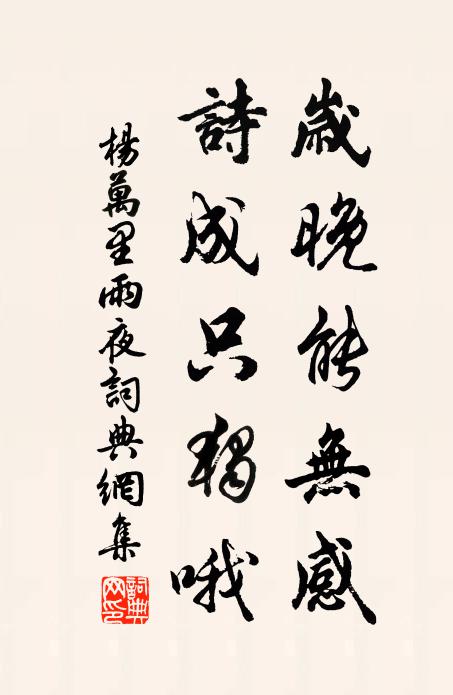 歲晚能無感
詩成只獨哦
楊萬里雨夜詞典網集
詞典
网印